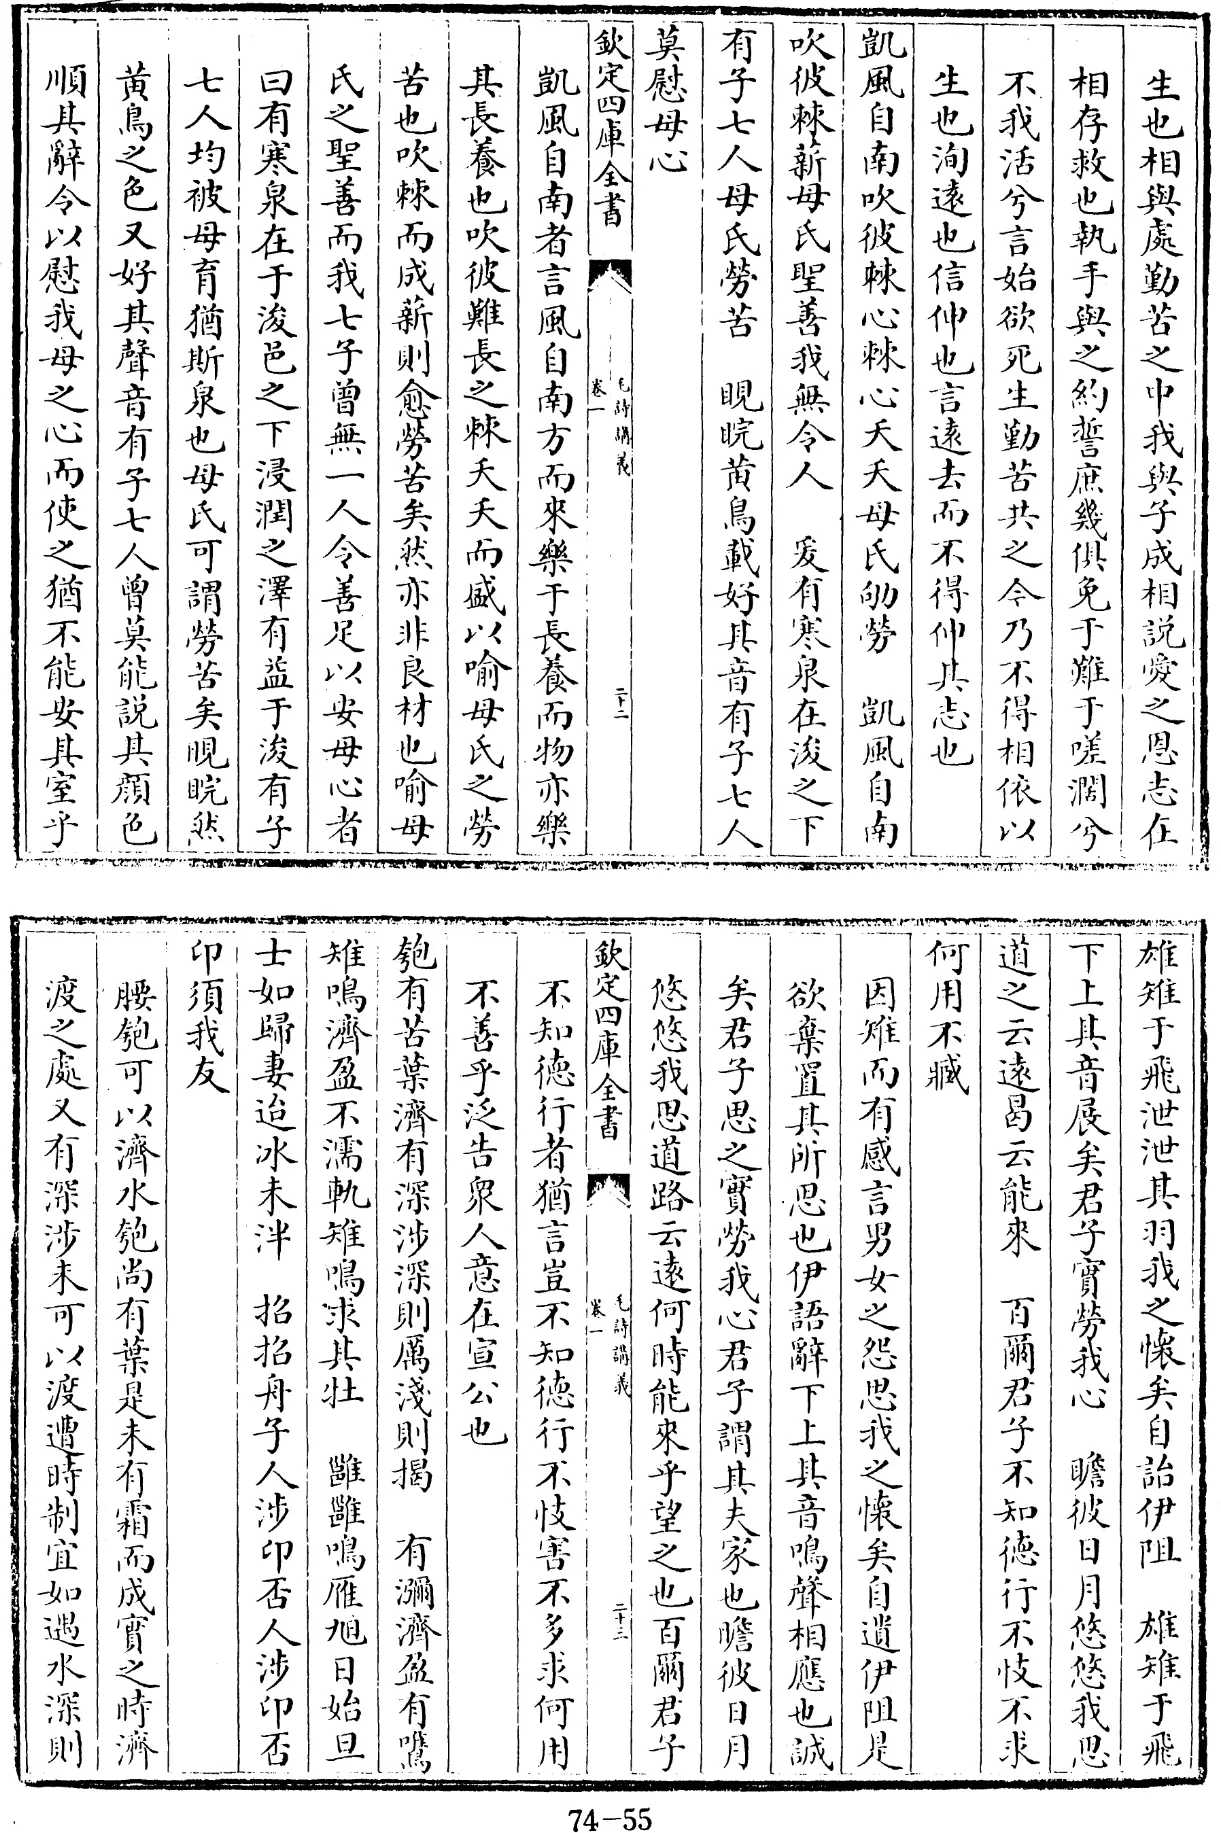 生也相與處勤苦之中我與子成相說愛之恩志在
相存救也執手與之約誓庶幾俱免于難于嗟濶兮
不我活兮言始欲死生勤苦共之今乃不得相依以
生也洵遠也信伸也言遠去而不得伸其志也
凱風自南吹彼棘心棘心夭夭母氏劬勞　凱風自南
吹彼棘薪母氏聖善我無令人　爰有寒泉在浚之下
有子七人母氏勞苦　睍睆黄鳥載好其音有子七人
莫慰母心
欽定四庫全書　毛詩講義 卷一　二十二
凱風自南者言風自南方而來樂于長養而物亦樂
其長養也吹彼難長之棘夭夭而盛以喻母氏之勞
苦也吹棘而成薪則愈勞苦矣然亦非良材也喻母
氏之聖善而我七子曾無一人令善足以安母心者
曰有寒泉在于浚邑之下浸潤之澤有益于浚有子
七人均被母育猶斯泉也母氏可謂勞苦矣睍睆然
黄鳥之色又好其聲音有子七人曾莫能說其顔色
順其辭令以慰我母之心而使之猶不能安其室乎
雄雉于飛泄泄其羽我之懷矣自詒伊阻　雄雉于飛
下上其音展矣君子實勞我心　瞻彼日月悠悠我思
道之云遠曷云能來　百爾君子不知德行不忮不求
何用不臧
因雉而有感言男女之怨思我之懷矣自遺伊阻是
欲棄置其所思也伊語辭下上其音鳴聲相應也誠
矣君子思之實勞我心君子謂其夫家也瞻彼日月
悠悠我思道路云遠何時能來乎望之也百爾君子
欽定四庫全書　毛詩講義 卷一　二十三
不知德行者猶言豈不知德行不忮害不多求何用
不善乎泛告衆人意在宣公也
匏有苦葉濟有深涉深則厲淺則揭　有瀰濟盈有鷕
雉鳴濟盈不濡軌雉鳴求其牡　雝雝鳴雁旭日始旦
士如歸妻迨冰未泮　招招舟子人涉卬否人涉卬否
卬須我友
腰匏可以濟水匏尚有葉是未有霜而成實之時濟
渡之處又有深涉未可以渡遭時制宜如遇水深則
74-55